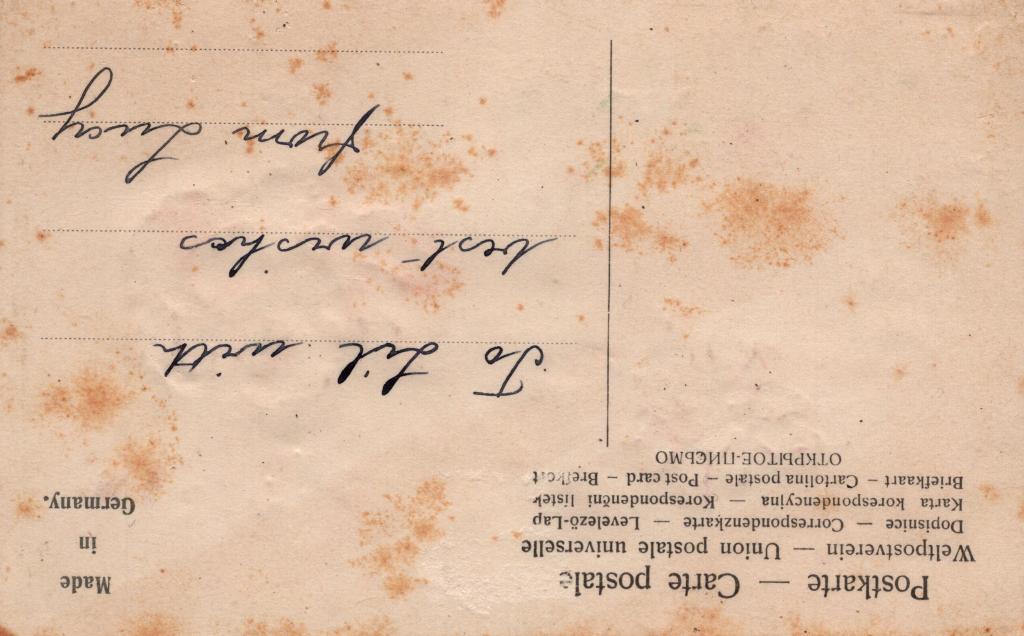 Postkarte — Carte postale
Weltpostverein — Union postale universelle
Dopisnice — Correspondenzkarte — Levelező-Lap
Karta korespondencyjna — Korespondenční listek
Briefkaart – Cartolina postale – Post card – Brefkort
ОТКРЫТОЕ-ПИСЬМО
Made
in
Germany.
To Lil with
best wishes
from Lucy